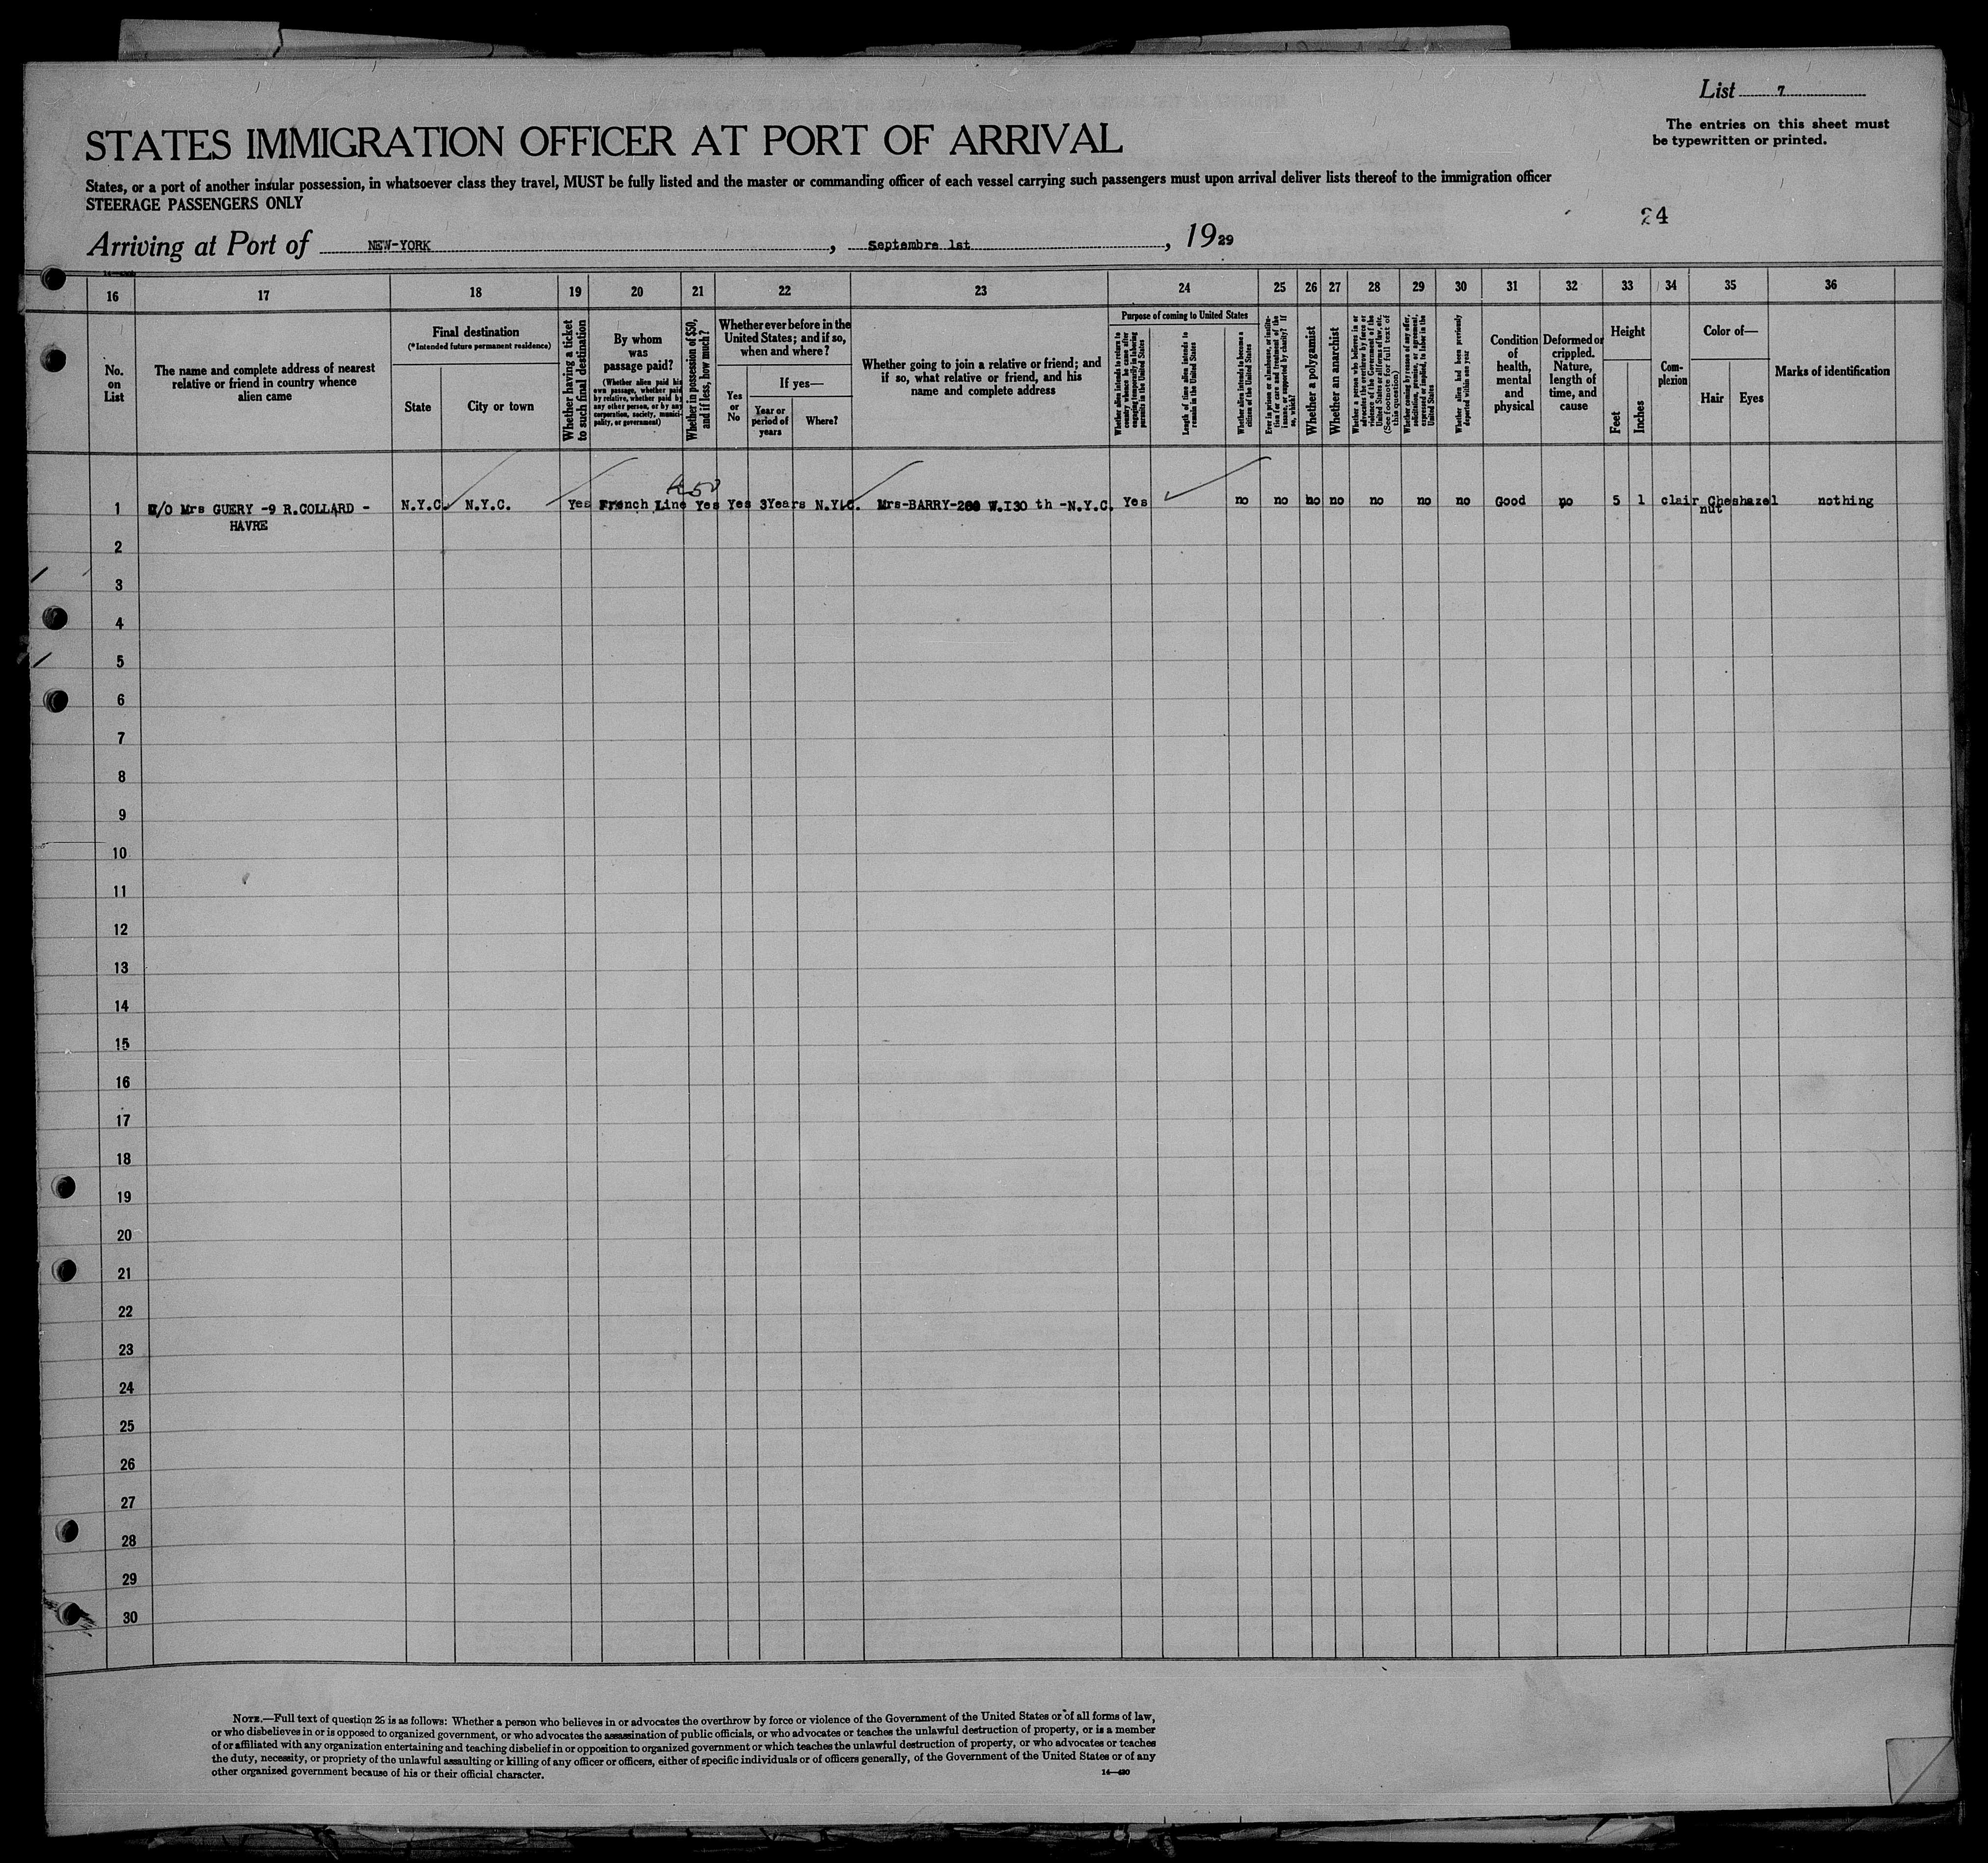 List 7
The entries on this sheet must
be typewritten or printed.
STATES IMMIGRATION OFFICER AT PORT OF ARRIVAL
States, or a port of another insular possession, in whatsoever class they travel, MUST be fully listed and the master or commanding officer of each vessel carrying such passengers must upon arrival deliver lists thereof to the immigration officer
STEERAGE PASSENGERS ONLY
24
Arriving at Port of NEW-YORK, Septembre 1st, 1929
16 17 18 19 20 21 22 23 24 25 26 27 28 29 30 31 32 33 34 35 36
No.
on
List
The name and complete address of nearest
relative or friend in country whence
alien came
Final destination
(*Intended future permanent residence)
State
City or town
Whether having a ticket
to such final destination
By whom
was
passage paid?
(Whether alien paid his
own passage, whether paid
by relative, whether paid by
any other person, or by any
corporation, society, munici-
pality, or government)
Whether in possession of $50,
and if less, how much?
Whether ever before in the
United States; and if so,
when and where?
Yes
or
No
If yes—
Year or
period of
years
Where?
Whether going to join a relative or friend; and
if so, what relative or friend, and his
name and complete address
Purpose of coming to United States
Whether alien intends to return to
country whence he came after
engaging temporarily in laboring
pursuits in the United States
Length of time alien intends to
remain in the United States
Whether alien intends to become a
citizen of the United States
Ever in prison or almshouse, or institu-
tion for care and treatment of the
insane, or supported by charity? If
so, which?
Whether a polygamist
Whether an anarchist
Whether a person who believes in or
advocates the overthrow by force or
violence of the Government of the
United States or all forms of law, etc.
(See footnote for full text of
this question)
Whether coming by reason of any offer,
solicitation, promise, or agreement,
expressed or implied, to labor in the
United States
Whether alien had been previously
deported within one year
Condition
of
health,
mental
and
physical
Deformed or
crippled.
Nature,
length of
time, and
cause
Height
Feet
Inches
Com-
plexion
Color of—
Hair
Eyes
Marks of identification
50
1 /O Mrs GUERY -9 R.COLLARD - N.Y.C. N.Y.C. Yes French Line Yes Yes 3Years N.Y.C. Mrs-BARRY- W.I30 th -N.Y.C. Yes no no no no no no no Good no 5 1 clair Ches hazel nothing
HAVRE nut
2
3
4
5
6
7
8
9
10
11
12
13
14
15
16
17
18
19
20
21
22
23
24
25
26
27
28
29
30
NOTE.—Full text of question 25 is as follows: Whether a person who believes in or advocates the overthrow by force or violence of the Government of the United States or of all forms of law,
or who disbelieves in or is opposed to organized government, or who advocates the assassination of public officials, or who advocates or teaches the unlawful destruction of property, or is a member
of or affiliated with any organization entertaining and teaching disbelief in or opposition to organized government or which teaches the unlawful destruction of property, or who advocates or teaches
the duty, necessity, or propriety of the unlawful assaulting or killing of any officer or officers, either of specific individuals or of officers generally, of the Government of the United States or of any
other organized government because of his or their official character.